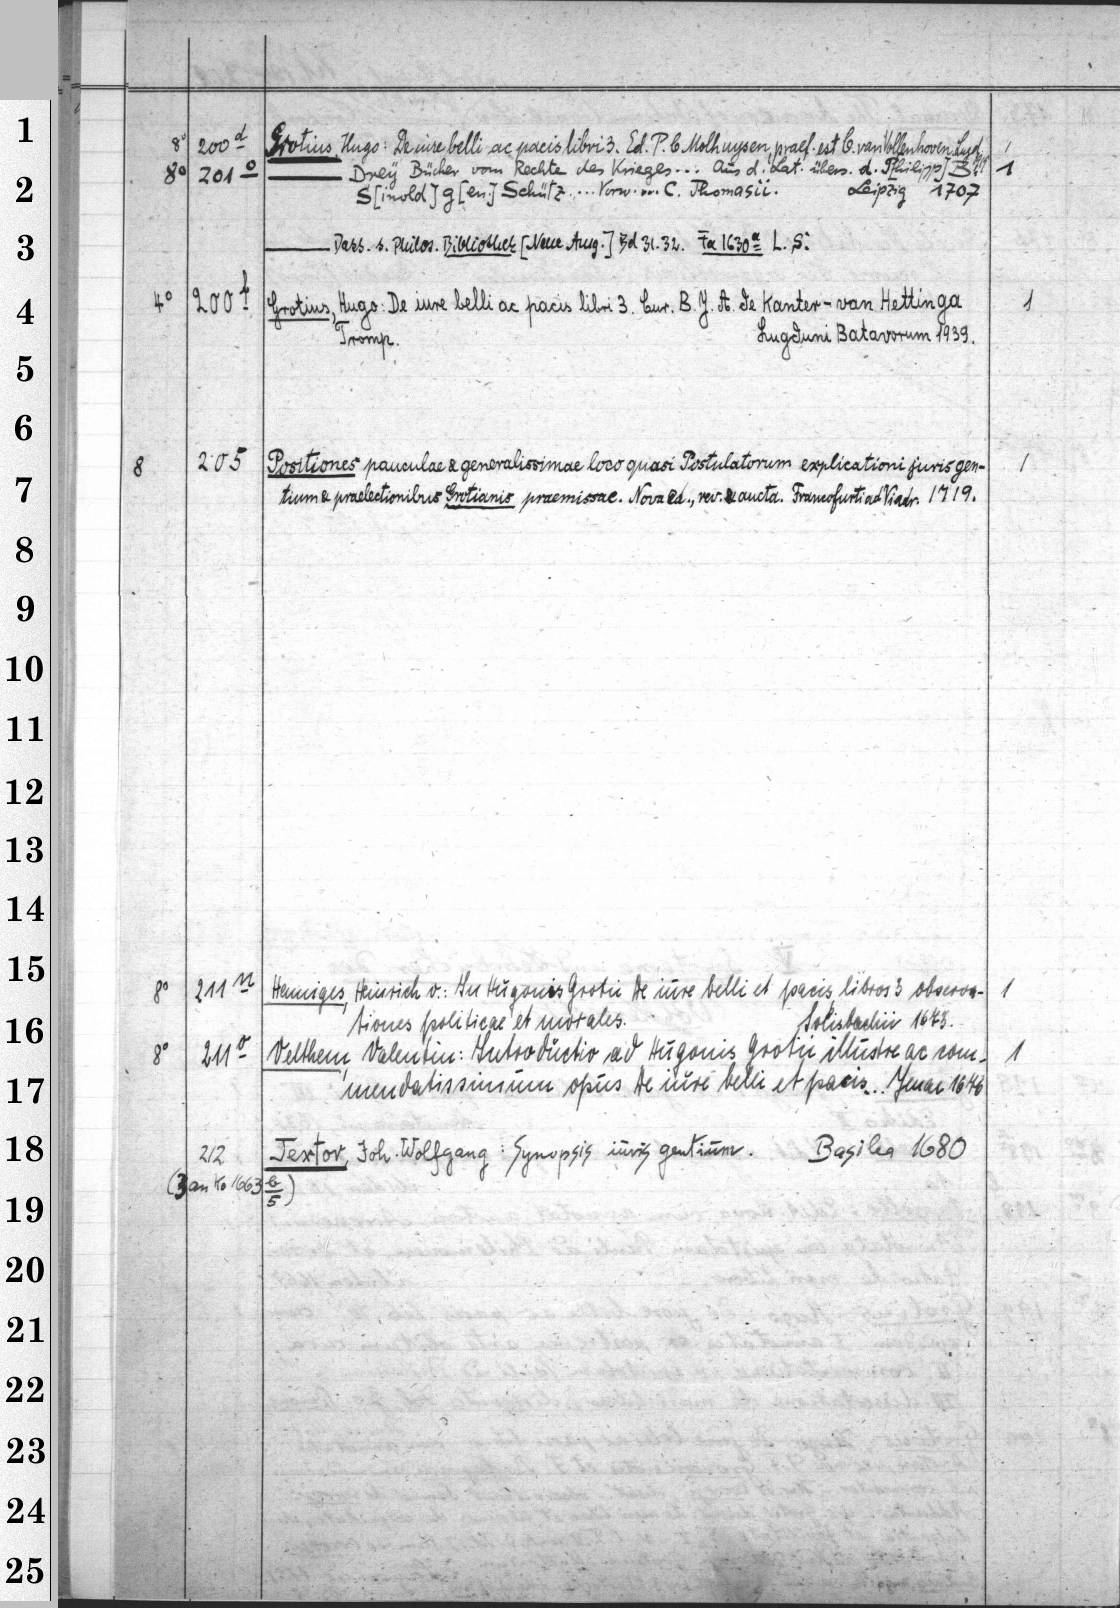 1
8° 200 d Grotius, Hugo: De iure belli ac pacis libri 3. Ed. P. C. Molhuysen, praef. est C. van Vollenhoven. Lugd. 1
8° 201 o ——— Drey Bücher vom Rechte des Krieges ... Aus d. Lat. übers. d. P[hilipp] B 1
2
S[inold] g[en.] Schütz .... Vorw. ... C. Thomasii. Leipzig 1707
3
——— Dass. s. Philos. Bibliothek [Neue Ausg.] Bd 31. 32. Fa 1630 a L. S:
4
4° 200 f Grotius, Hugo: De iure belli ac pacis libri 3. Cur. B. J. A. de Kanter-van Hettinga 1
Tromp. Lugduni Batavorum 1939.
5
6
8 205 Positiones pauculae & generalissimae loco quasi Postulatorum explicationi juris gen- 1
7
tium & praelectionibus Grotianis praemissae. Nova ed., rev. & aucta. Francofurti ad Viadr. 1719.
8
9
10
11
12
13
14
15
8° 211 n Henniges, Heinrich v.: In Hugonis Grotii de iure belli et pacis libros 3 observa- 1
16
tiones politicae et morales. Solisbachii 1673.
8° 211 o Velthem, Valentin: Introductio ad Hugonis Grotii illustre ac com- 1
17
mendatissimum opus de iure belli et pacis... Jenae 1676
18
212 Textor, Joh. Wolfgang: Synopsis iuris gentium. Basilea 1680
(3 an Ko 1663 6/5)
19
20
21
22
23
24
25